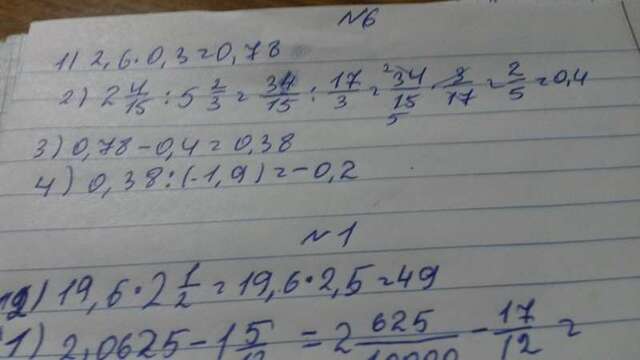 №6
1) 2,6·0,3=0,78
2) 2 4/15 : 5 2/3 = 34/15 : 17/3 = 34/15 · 3/17 = 2/5 = 0,4
3) 0,78-0,4=0,38
4) 0,38:(-1,9)=-0,2
№1
19,6·2 1/2=19,6·2,5=49
1) 2,0625-1 5/12 = 2 625/10000 - 17/12 =